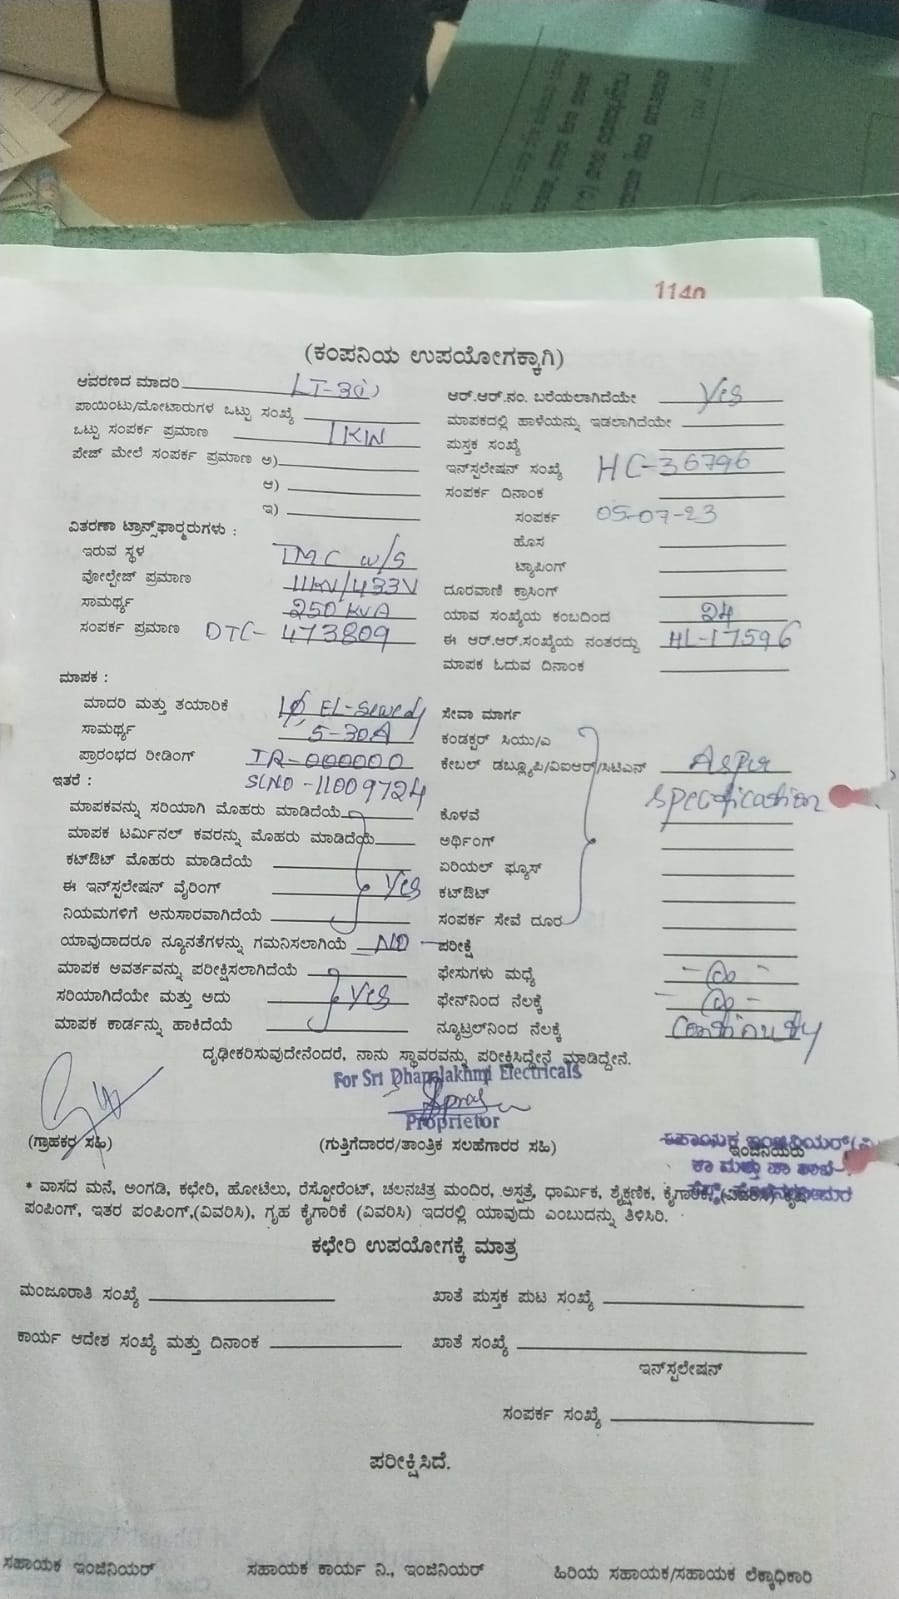 1140
(ಕಂಪನಿಯ ಉಪಯೋಗಕ್ಕಾಗಿ)
ಆವರಣದ ಮಾದರಿ LT-3(i)
ಪಾಯಿಂಟು/ಮೋಟಾರುಗಳ ಒಟ್ಟು ಸಂಖ್ಯೆ
ಒಟ್ಟು ಸಂಪರ್ಕ ಪ್ರಮಾಣ 1KW
ಪೇಜ್ ಮೇಲೆ ಸಂಪರ್ಕ ಪ್ರಮಾಣ ಅ)
ಆ)
ಇ)
ವಿತರಣಾ ಟ್ರಾನ್ಸ್‌ಫಾರ್‍ಮರುಗಳು :
ಇರುವ ಸ್ಥಳ TMC W/S
ವೋಲ್ಟೇಜ್ ಪ್ರಮಾಣ 11KV/433V
ಸಾಮರ್ಥ್ಯ 250 KVA
ಸಂಪರ್ಕ ಪ್ರಮಾಣ DTC- 473809
ಮಾಪಕ :
ಮಾದರಿ ಮತ್ತು ತಯಾರಿಕೆ 1Ø, EL-Sewedy
ಸಾಮರ್ಥ್ಯ 5-30A
ಪ್ರಾರಂಭದ ರೀಡಿಂಗ್ IR-000000
ಇತರೆ : SLNO-11009724
ಮಾಪಕವನ್ನು ಸರಿಯಾಗಿ ಮೊಹರು ಮಾಡಿದೆಯೆ
ಮಾಪಕ ಟರ್ಮಿನಲ್ ಕವರನ್ನು ಮೊಹರು ಮಾಡಿದೆಯೆ
ಕಟ್‌ಔಟ್ ಮೊಹರು ಮಾಡಿದೆಯೆ
ಈ ಇನ್‌ಸ್ಟಲೇಷನ್ ವೈರಿಂಗ್ Yes
ನಿಯಮಗಳಿಗೆ ಅನುಸಾರವಾಗಿದೆಯೆ
ಯಾವುದಾದರೂ ನ್ಯೂನತೆಗಳನ್ನು ಗಮನಿಸಲಾಗಿಯೆ NO
ಮಾಪಕ ಅವರ್ತವನ್ನು ಪರೀಕ್ಷಿಸಲಾಗಿದೆಯೆ
ಸರಿಯಾಗಿದೆಯೇ ಮತ್ತು ಅದು Yes
ಮಾಪಕ ಕಾರ್ಡನ್ನು ಹಾಕಿದೆಯೆ
ಆರ್.ಆರ್.ನಂ. ಬರೆಯಲಾಗಿದೆಯೇ Yes
ಮಾಪಕದಲ್ಲಿ ಹಾಳೆಯನ್ನು ಇಡಲಾಗಿದೆಯೇ
ಪುಸ್ತಕ ಸಂಖ್ಯೆ
ಇನ್‌ಸ್ಟಲೇಷನ್ ಸಂಖ್ಯೆ HC-36796
ಸಂಪರ್ಕ ದಿನಾಂಕ
ಸಂಪರ್ಕ 05-07-23
ಹೊಸ
ಟ್ಯಾಪಿಂಗ್
ದೂರವಾಣಿ ಕ್ರಾಸಿಂಗ್
ಯಾವ ಸಂಖ್ಯೆಯ ಕಂಬದಿಂದ 24
ಈ ಆರ್.ಆರ್.ಸಂಖ್ಯೆಯ ನಂತರದ್ದು HL-17596
ಮಾಪಕ ಓದುವ ದಿನಾಂಕ
ಸೇವಾ ಮಾರ್ಗ
ಕಂಡಕ್ಟರ್ ಸಿಯು/ಎ
ಕೇಬಲ್ ಡಬ್ಲ್ಯೂಪಿ/ವಿಐಆರ್/ಸಿಟಿಎಸ್ Asper
specification
ಕೊಳವೆ
ಅರ್ಥಿಂಗ್
ಏರಿಯಲ್ ಫ್ಯೂಸ್
ಕಟ್‌ಔಟ್
ಸಂಪರ್ಕ ಸೇವೆ ದೂರ
ಪರೀಕ್ಷೆ
ಫೇಸುಗಳು ಮಧ್ಯೆ - ∞ -
ಫೇಸ್‌ನಿಂದ ನೆಲಕ್ಕೆ - ∞ -
ನ್ಯೂಟ್ರಲ್‌ನಿಂದ ನೆಲಕ್ಕೆ Continuity
ದೃಢೀಕರಿಸುವುದೇನೆಂದರೆ, ನಾನು ಸ್ಥಾವರವನ್ನು ಪರೀಕ್ಷಿಸಿದ್ದೇನೆ ಮಾಡಿದ್ದೇನೆ.
For Sri Dhanalakhmi Electricals
Proprietor
(ಗ್ರಾಹಕರ ಸಹಿ)
(ಗುತ್ತಿಗೆದಾರರ/ತಾಂತ್ರಿಕ ಸಲಹೆಗಾರರ ಸಹಿ)
ಸಹಾಯಕ ಇಂಜಿನಿಯರ್(ವಿ
ಇಂಜಿನಿಯರು
ಕಾ ಮತ್ತು ಪಾ ಶಾಖೆ
* ವಾಸದ ಮನೆ, ಅಂಗಡಿ, ಕಛೇರಿ, ಹೋಟೆಲು, ರೆಸ್ಟೋರೆಂಟ್, ಚಲನಚಿತ್ರ ಮಂದಿರ, ಅಸ್ಪತ್ರೆ, ಧಾರ್ಮಿಕ, ಶೈಕ್ಷಣಿಕ, ಕೈಗಾರಿಕೆ, (ವಿವರಿಸಿ) ಕೃಷಿ
ಪಂಪಿಂಗ್, ಇತರ ಪಂಪಿಂಗ್,(ವಿವರಿಸಿ), ಗೃಹ ಕೈಗಾರಿಕೆ (ವಿವರಿಸಿ) ಇದರಲ್ಲಿ ಯಾವುದು ಎಂಬುದನ್ನು ತಿಳಿಸಿರಿ.
ಕಛೇರಿ ಉಪಯೋಗಕ್ಕೆ ಮಾತ್ರ
ಮಂಜೂರಾತಿ ಸಂಖ್ಯೆ
ಖಾತೆ ಪುಸ್ತಕ ಪುಟ ಸಂಖ್ಯೆ
ಕಾರ್ಯ ಆದೇಶ ಸಂಖ್ಯೆ ಮತ್ತು ದಿನಾಂಕ
ಖಾತೆ ಸಂಖ್ಯೆ
ಇನ್‌ಸ್ಟಲೇಷನ್
ಸಂಪರ್ಕ ಸಂಖ್ಯೆ
ಪರೀಕ್ಷಿಸಿದೆ.
ಸಹಾಯಕ ಇಂಜಿನಿಯರ್
ಸಹಾಯಕ ಕಾರ್ಯ ನಿ., ಇಂಜಿನಿಯರ್
ಹಿರಿಯ ಸಹಾಯಕ/ಸಹಾಯಕ ಲೆಕ್ಕಾಧಿಕಾರಿ